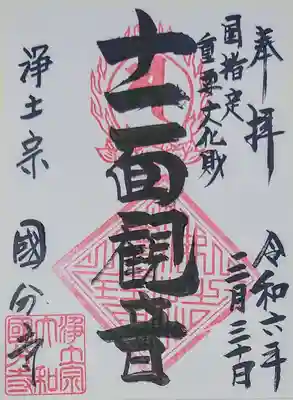 奉拝
国指定
重要文化財
十一面觀音
令和六年
浄土宗 國分寺
浄土宗
大和
國分寺